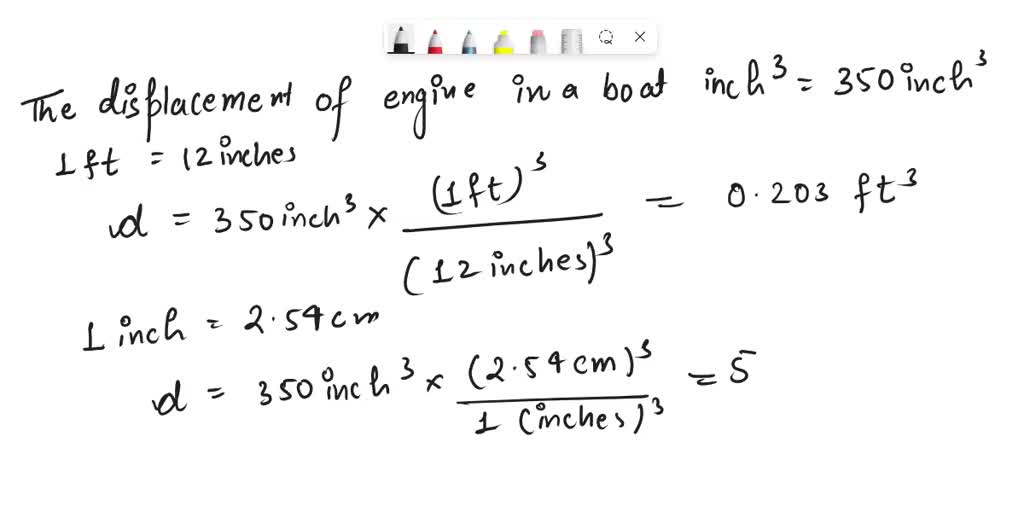 The displacement of engine in a boat inch³ = 350 inch³
1 ft = 12 inches
d = 350 inch³ × (1 ft)³ / (12 inches)³ = 0.203 ft³
1 inch = 2.54 cm
d = 350 inch³ × (2.54 cm)³ / 1 (inches)³ = 5